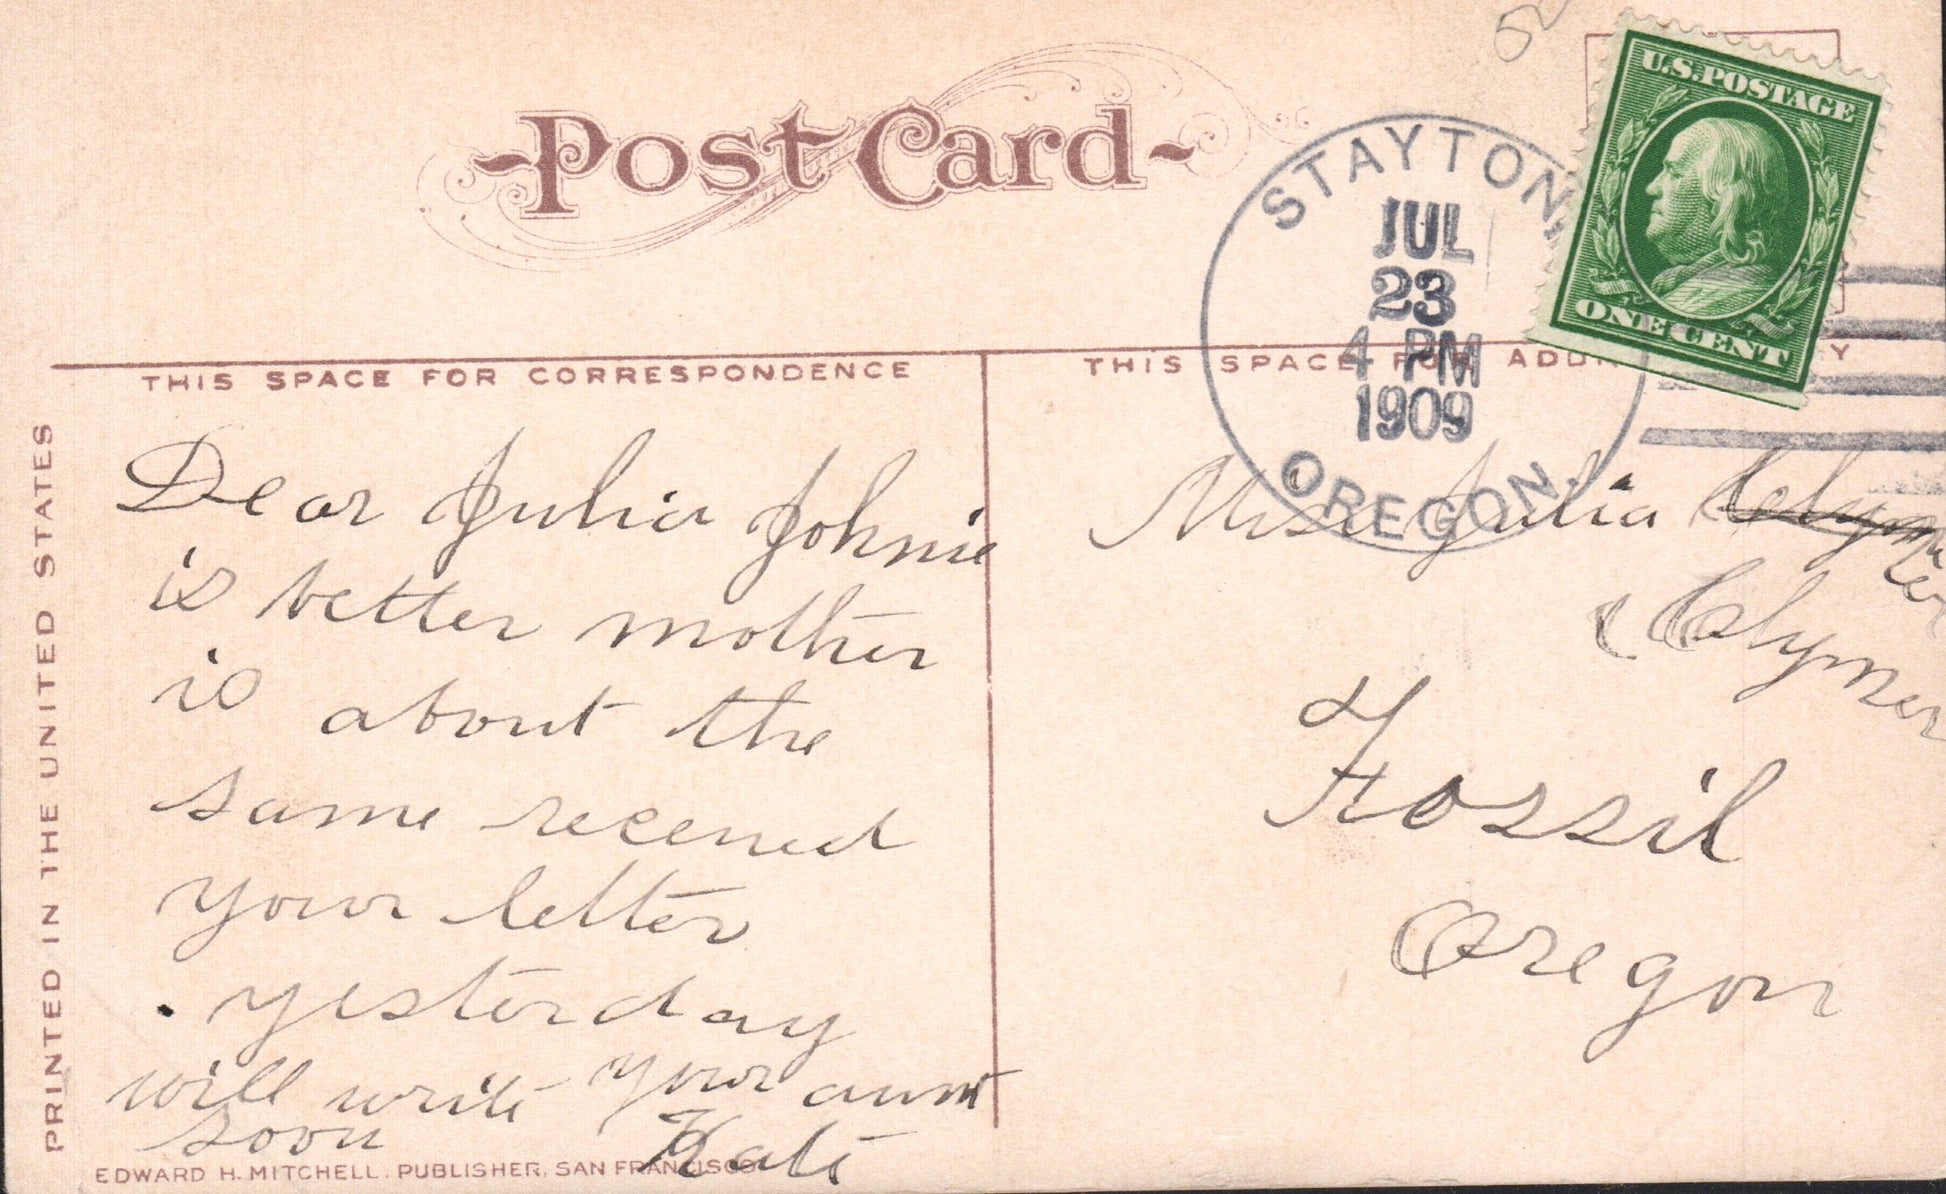 Post Card
U.S. POSTAGE
ONE CENT
STAYTON,
JUL
23
4 PM
1909
OREGON.
THIS SPACE FOR CORRESPONDENCE
THIS SPACE FOR
PRINTED IN THE UNITED STATES
Dear Julia Johnie
is better mother
is about the
same received
your letter
yesterday
will write your aunt
soon Kate
Miss Julia
Clymer
Fossil
Oregon
EDWARD H. MITCHELL. PUBLISHER. SAN FRANCISCO